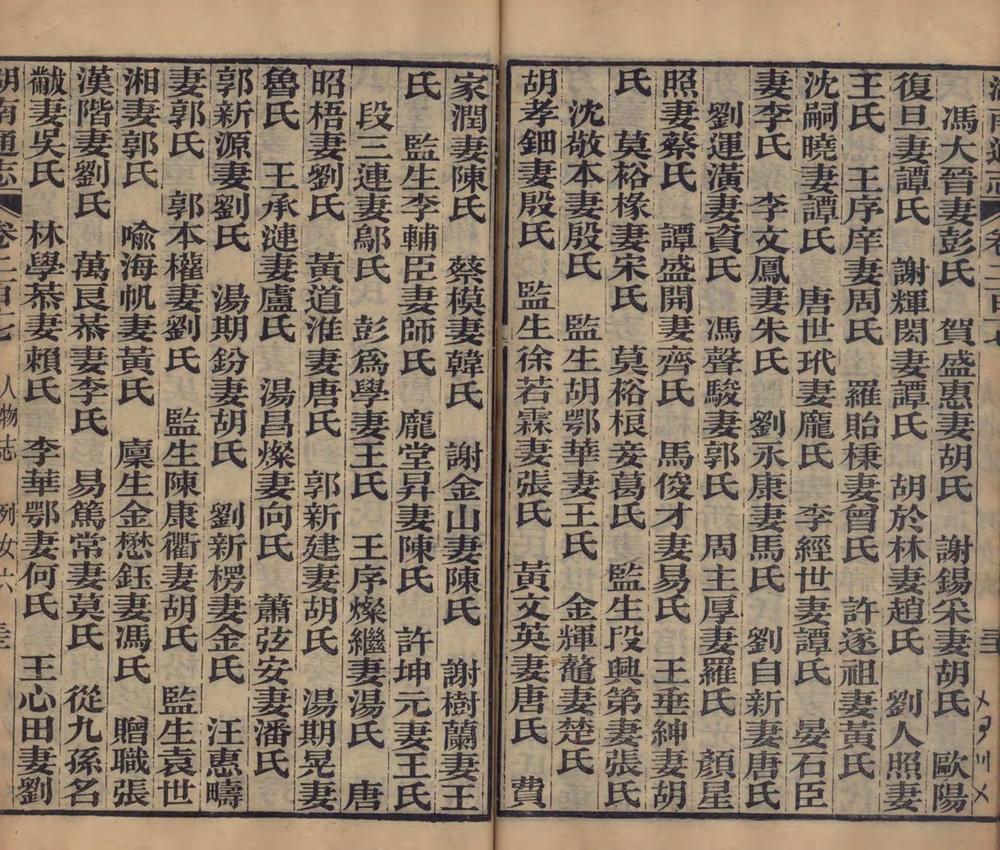 馮大晉妻彭氏　賀盛惠妻胡氏　謝錫宷妻胡氏　歐陽
復旦妻譚氏　謝輝閎妻譚氏　胡於林妻趙氏　劉人照妻
王氏　王序庠妻周氏　羅貽棟妻曾氏　許遂祖妻黃氏
沈嗣曉妻譚氏　唐世玳妻龐氏　李經世妻譚氏　晏石臣
妻李氏　李文鳳妻朱氏　劉永康妻馬氏　劉自新妻唐氏
劉運潢妻資氏　馮聲駿妻郭氏　周主厚妻羅氏　顏星
照妻蔡氏　譚盛開妻齊氏　馬俊才妻易氏　王垂紳妻胡
氏　莫裕椽妻宋氏　莫裕根妻葛氏　監生段興第妻張氏
沈敬本妻殷氏　監生胡鄂華妻王氏　金輝鼇妻楚氏
胡孝鈿妻殷氏　監生徐若霖妻張氏　黃文英妻唐氏　費
家潤妻陳氏　蔡模妻韓氏　謝金山妻陳氏　謝樹蘭妻王
氏　監生李輔臣妻師氏　龐堂昇妻陳氏　許坤元妻王氏
段三連妻鄔氏　彭爲學妻王氏　王序燦繼妻湯氏　唐
昭梧妻劉氏　黃道淮妻唐氏　郭新建妻胡氏　湯期晃妻
魯氏　王承漣妻盧氏　湯昌燦妻向氏　蕭弦安妻潘氏
郭新源妻劉氏　湯期鈖妻胡氏　劉新楞妻金氏　汪惠疇
妻郭氏　郭本權妻劉氏　監生陳康衢妻胡氏　監生袁世
湘妻郭氏　喻海帆妻黃氏　廩生金懋鈺妻馮氏　贈職張
漢階妻劉氏　萬艮菾妻李氏　易篤常妻莫氏　從九孫名
黻妻吳氏　林學菾妻賴氏　李華鄂妻何氏　王心田妻劉
湖南通志　卷二百七　人物志　列女六